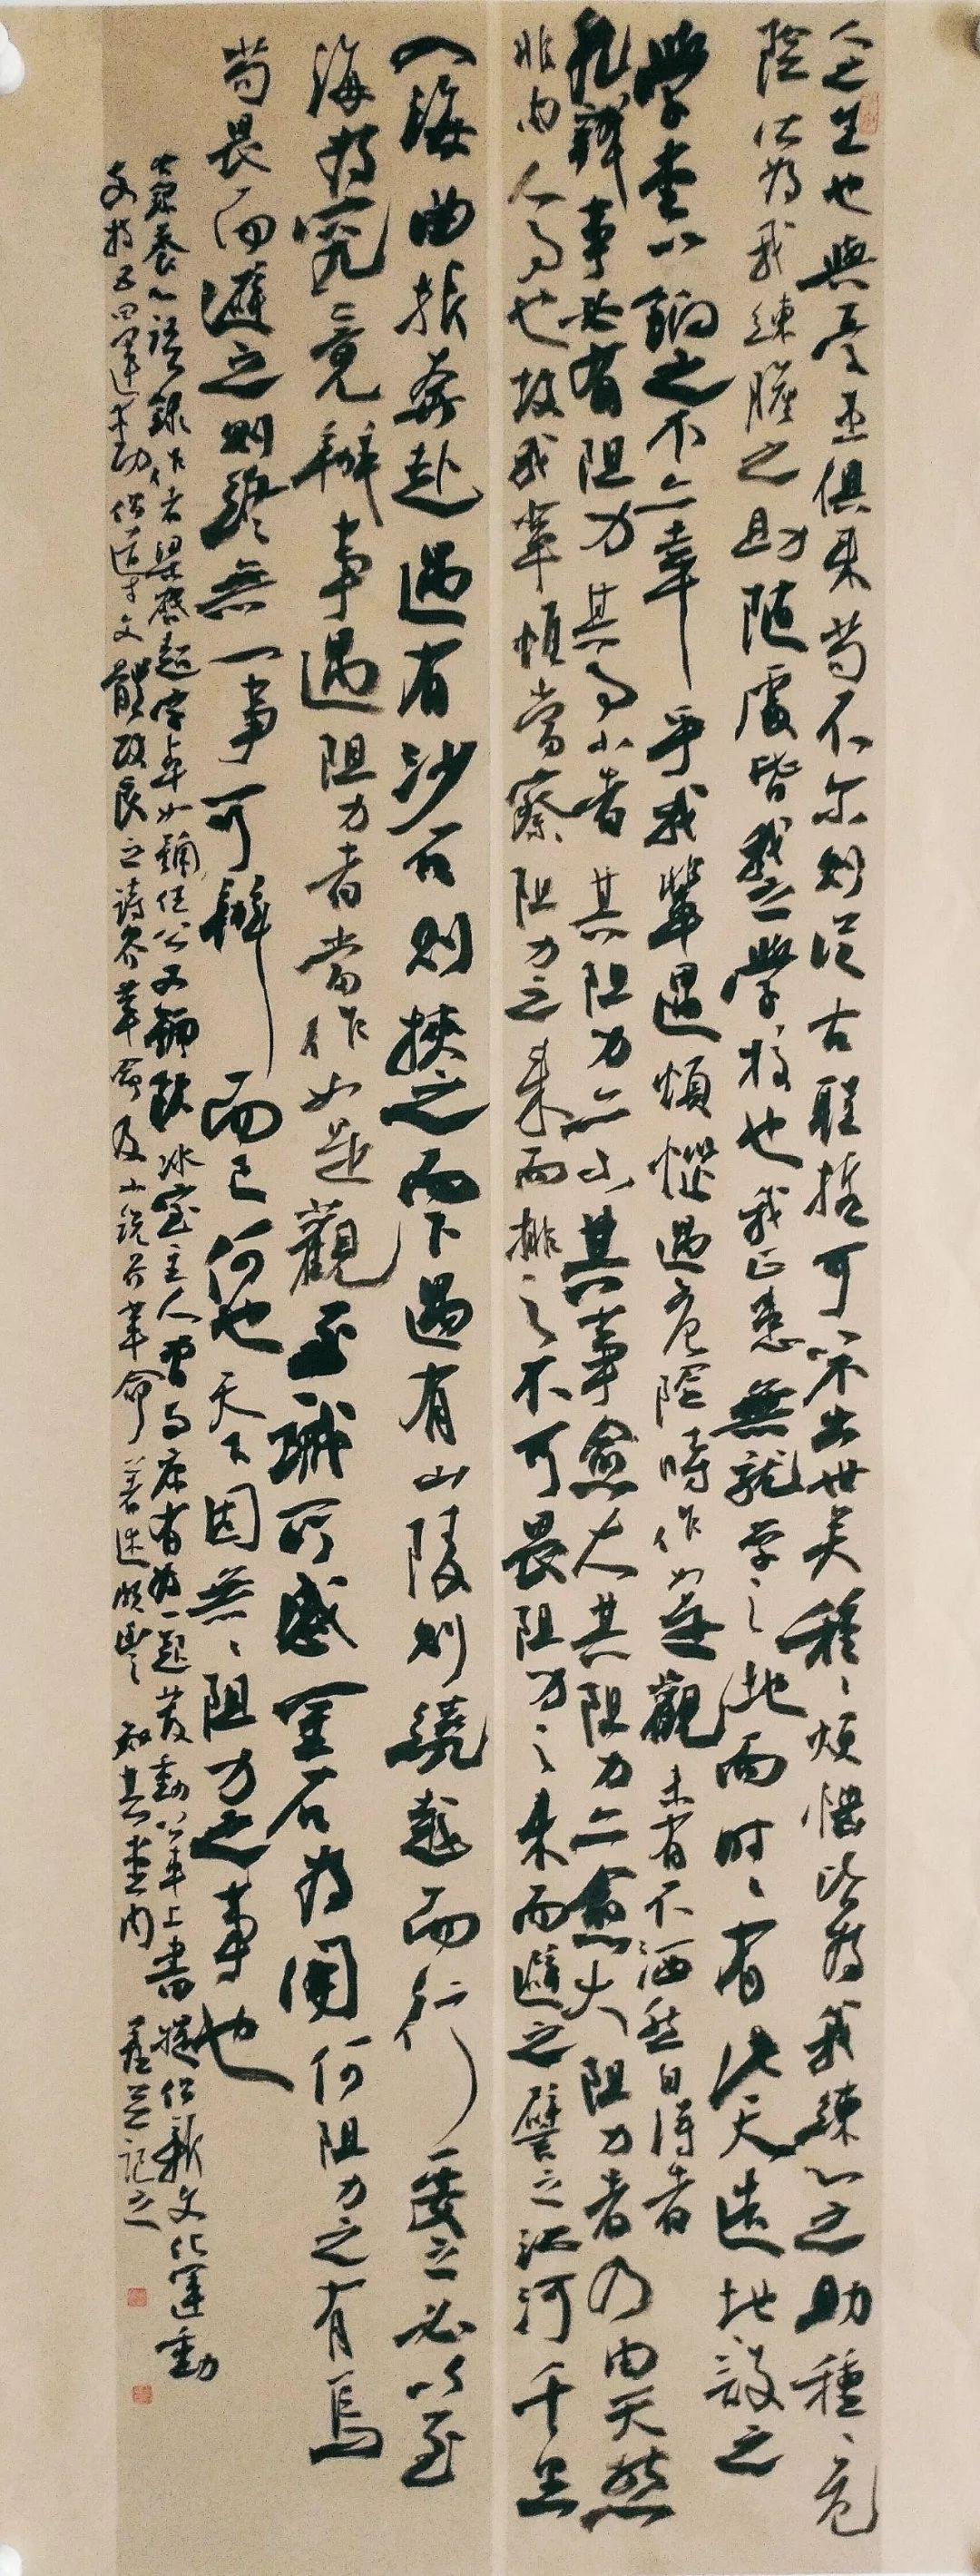 人之生也與憂患俱來苟不尔則從古聖哲可以不出世矣種々煩惱皆為我練心之助種々危
險皆為我練膽之助随處皆我之學校也我正患無就學之地而時々有此天造地設之
學堂以餉之不亦幸乎我輩遇煩惱遇危險時作如是觀未有不洒然自得者
凡辦事必有阻力其事小者其阻力亦小其事愈大其阻力亦愈大阻力者乃由天然
非由人事也故我輩惟當察阻力之來而排之不可畏阻力之來而避之譬之江河千里
入海曲折奔赴遇有沙石則挾之而下遇有山陵則繞越而行要之必以至
海為究竟辦事遇阻力者當作如是觀至誠所感金石為開何阻力之有焉
苟畏而避之則終無一事可辦而已何也天下固無々阻力之事也
錄養心語錄作者梁啟超字卓如號任公又號飲冰室主人曾與康有為一起發動公車上書提倡新文化運動
支持五四運動倡導文體改良之詩界革命及小說界革命著述頗豐 堂內 記之